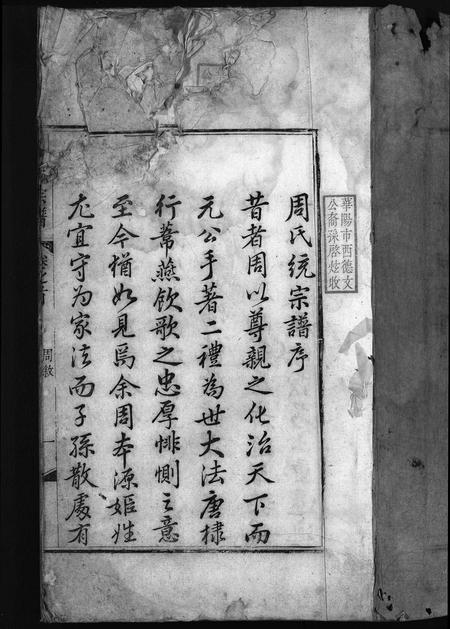 華陽市西德文
公裔孫啓炫收
周氏統宗譜序
昔者周以尊親之化治天下而
元公手著二禮為世大法唐棣
行葦燕飲歌之忠厚悱惻之意
至今猶如見焉余周本源姬姓
尤宜守為家法而子孫散處有
宗譜
卷之首
周敘